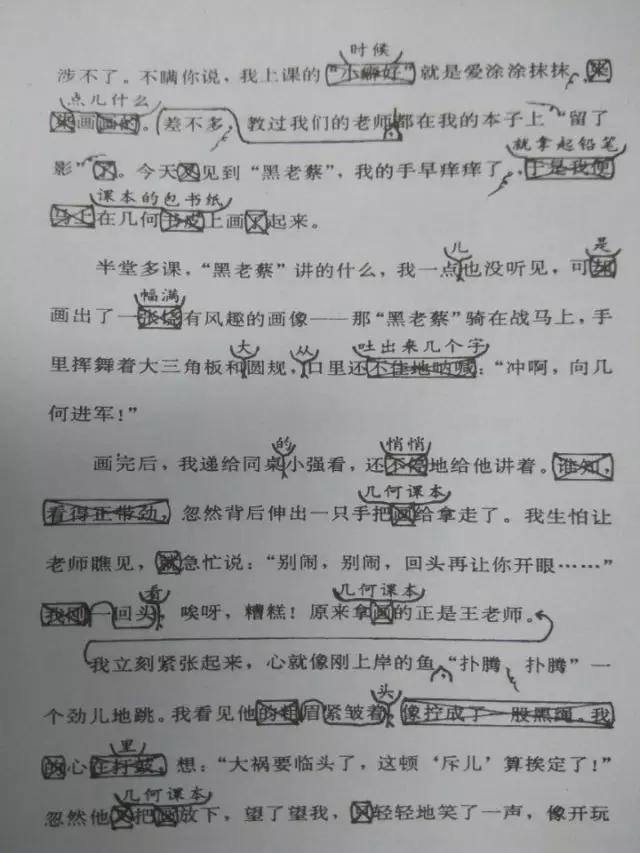 时候
涉不了。不瞒你说，我上课的“小癖好”就是爱涂涂抹抹，
点儿什么
画。差不多，教过我们的老师都在我的本子上“留了
就拿起铅笔
影”了。今天又见到“黑老蔡”，我的手早痒痒了，于是我便
课本的包书纸
马上在几何书皮上画了起来。
儿 是
半堂多课，“黑老蔡”讲的什么，我一点也没听见，可却
幅满
画出了一张饶有风趣的画像——那“黑老蔡”骑在战马上，手
大 从 吐出来几个字
里挥舞着大三角板和圆规，口里还不住地呐喊：“冲啊，向几
何进军！”
的 悄悄
画完后，我递给同桌小强看，还不停地给他讲着。谁知，
几何课本
看得正带劲，忽然背后伸出一只手把画给拿走了。我生怕让
老师瞧见，就急忙说：“别闹，别闹，回头再让你开眼……”
看 几何课本
我刚一回头，唉呀，糟糕！原来拿画的正是王老师。
我立刻紧张起来，心就像刚上岸的鱼，“扑腾、扑腾”一
头
个劲儿地跳。我看见他的粗眉紧皱着，像拧成了一股黑绳。我
里
的心在打鼓，想：“大祸要临头了，这顿‘斥儿’算挨定了！”
几何课本
忽然他又把画放下，望了望我，又轻轻地笑了一声，像开玩